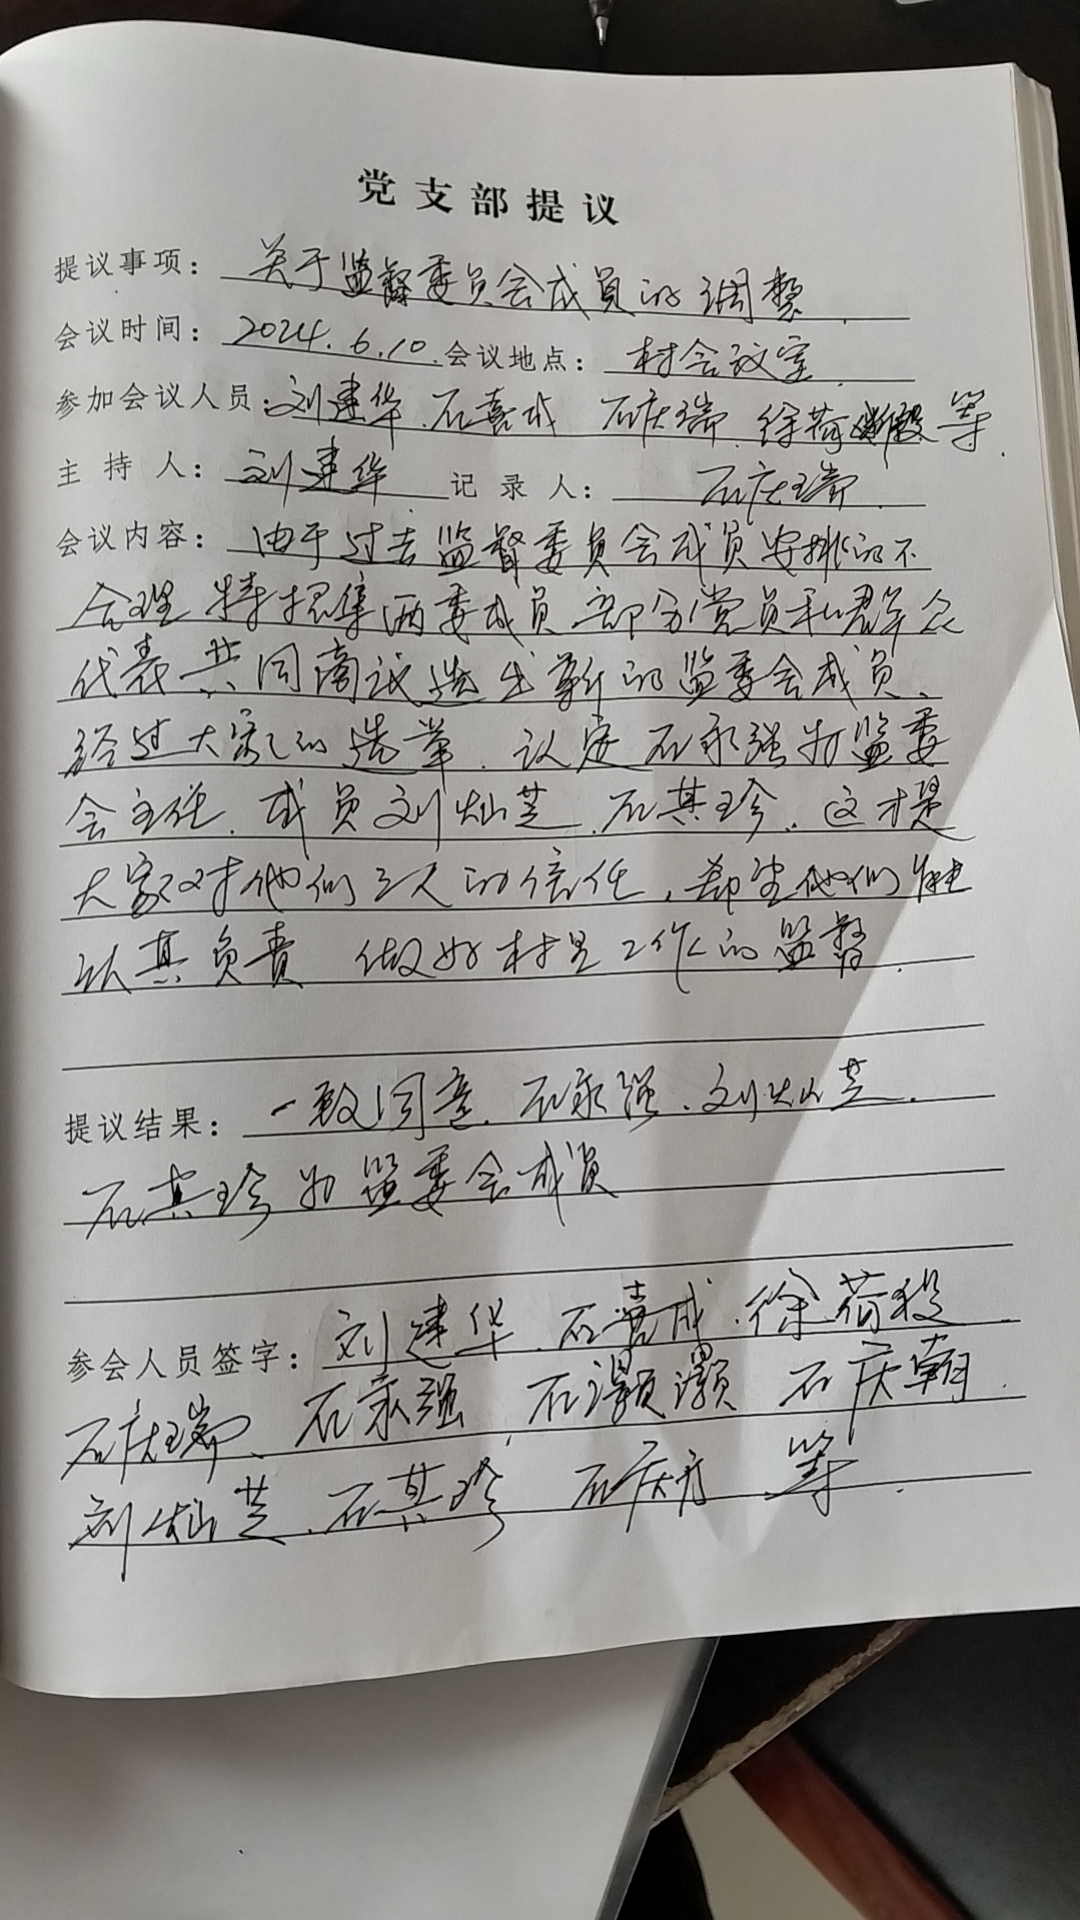 党支部提议
提议事项：关于监督委员会成员的调整.
会议时间：2024.6.10.会议地点：村会议室.
参加会议人员：刘建华.石喜成 石庆瑞.徐荷 等.
主持人：刘建华 记录人：石庆瑞.
会议内容：由于过去监督委员会成员安排的不
合理 特招集两委成员 部分党员和群众
代表 共同商议选出新的监委会成员、
经过大家的选举.认定石永强为监委
会主任.成员刘灿芝.石其珍.这才是
大家对他们三人的信任，希望他们能
认真负责 做好村里工作的监督.
提议结果：一致同意.石永强.刘灿芝.
石其珍为监委会成员
参会人员签字：刘建华.石喜成.徐荷
石庆瑞、石永强.石灏灏 石庆朝.
刘灿芝.石其珍 石庆方 等.